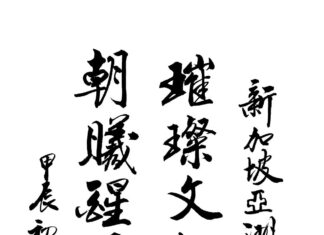 新加坡亞洲
璀璨文
朝曦醒
甲辰初